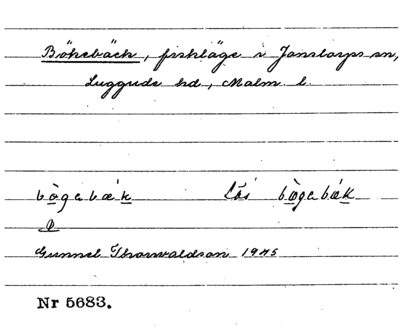 Bökebäck, fiskläge i Jonstorps sn,
Luggude hd, Malm. l.
bògabæ̀k läs bògabæ̀k
Gunnel Thorwaldson 1945
Nr 5683.